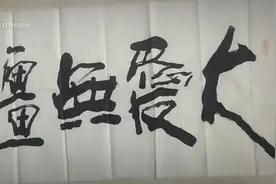 大愛無疆